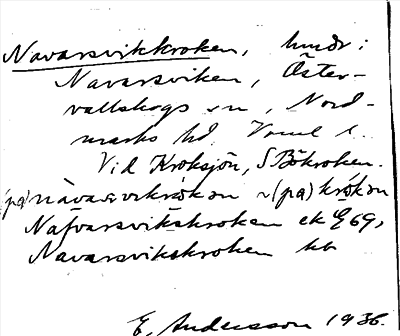 Navarsvikkroken, hmdr i
Navarsviken, Öster-
vallskogs sn, Nord-
marks hd. Vrml l.
Vid Kroksjön, SBökroken.
(pa) nàvaʂvikrókən ~ (pa) krókən
Nafvarsvikskroken ek E 69,
Navarsvikskroken kb
E. Andersson 1936.